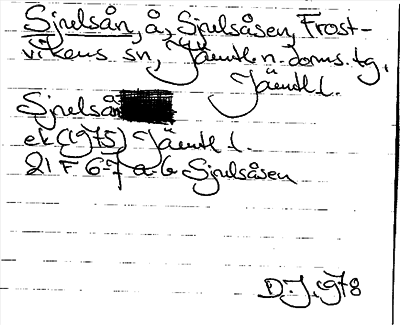 Sjulsån, å, Sjulsåsen, Frost-
vikens sn, Jämtl. n. doms. tg,
Jämtl l.
Sjulsån
ek (1975) Jämtl l.
21 F 6-7 a-b Sjulsåsen
D.J. 1978